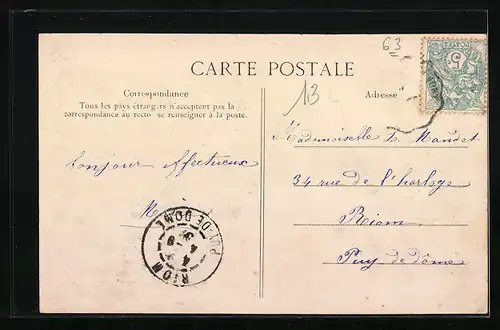 63
CARTE POSTALE
13
Correspondance
Tous les pays étrangers n'acceptent pas la
correspondance au recto se renseigner à la poste.
Adresse
Bonjour affectueux
M
Mademoiselle L. Mandet
34 rue de l'horloge
Riom
Puy de dôme
RIOM
PUY-DE-DOME
5